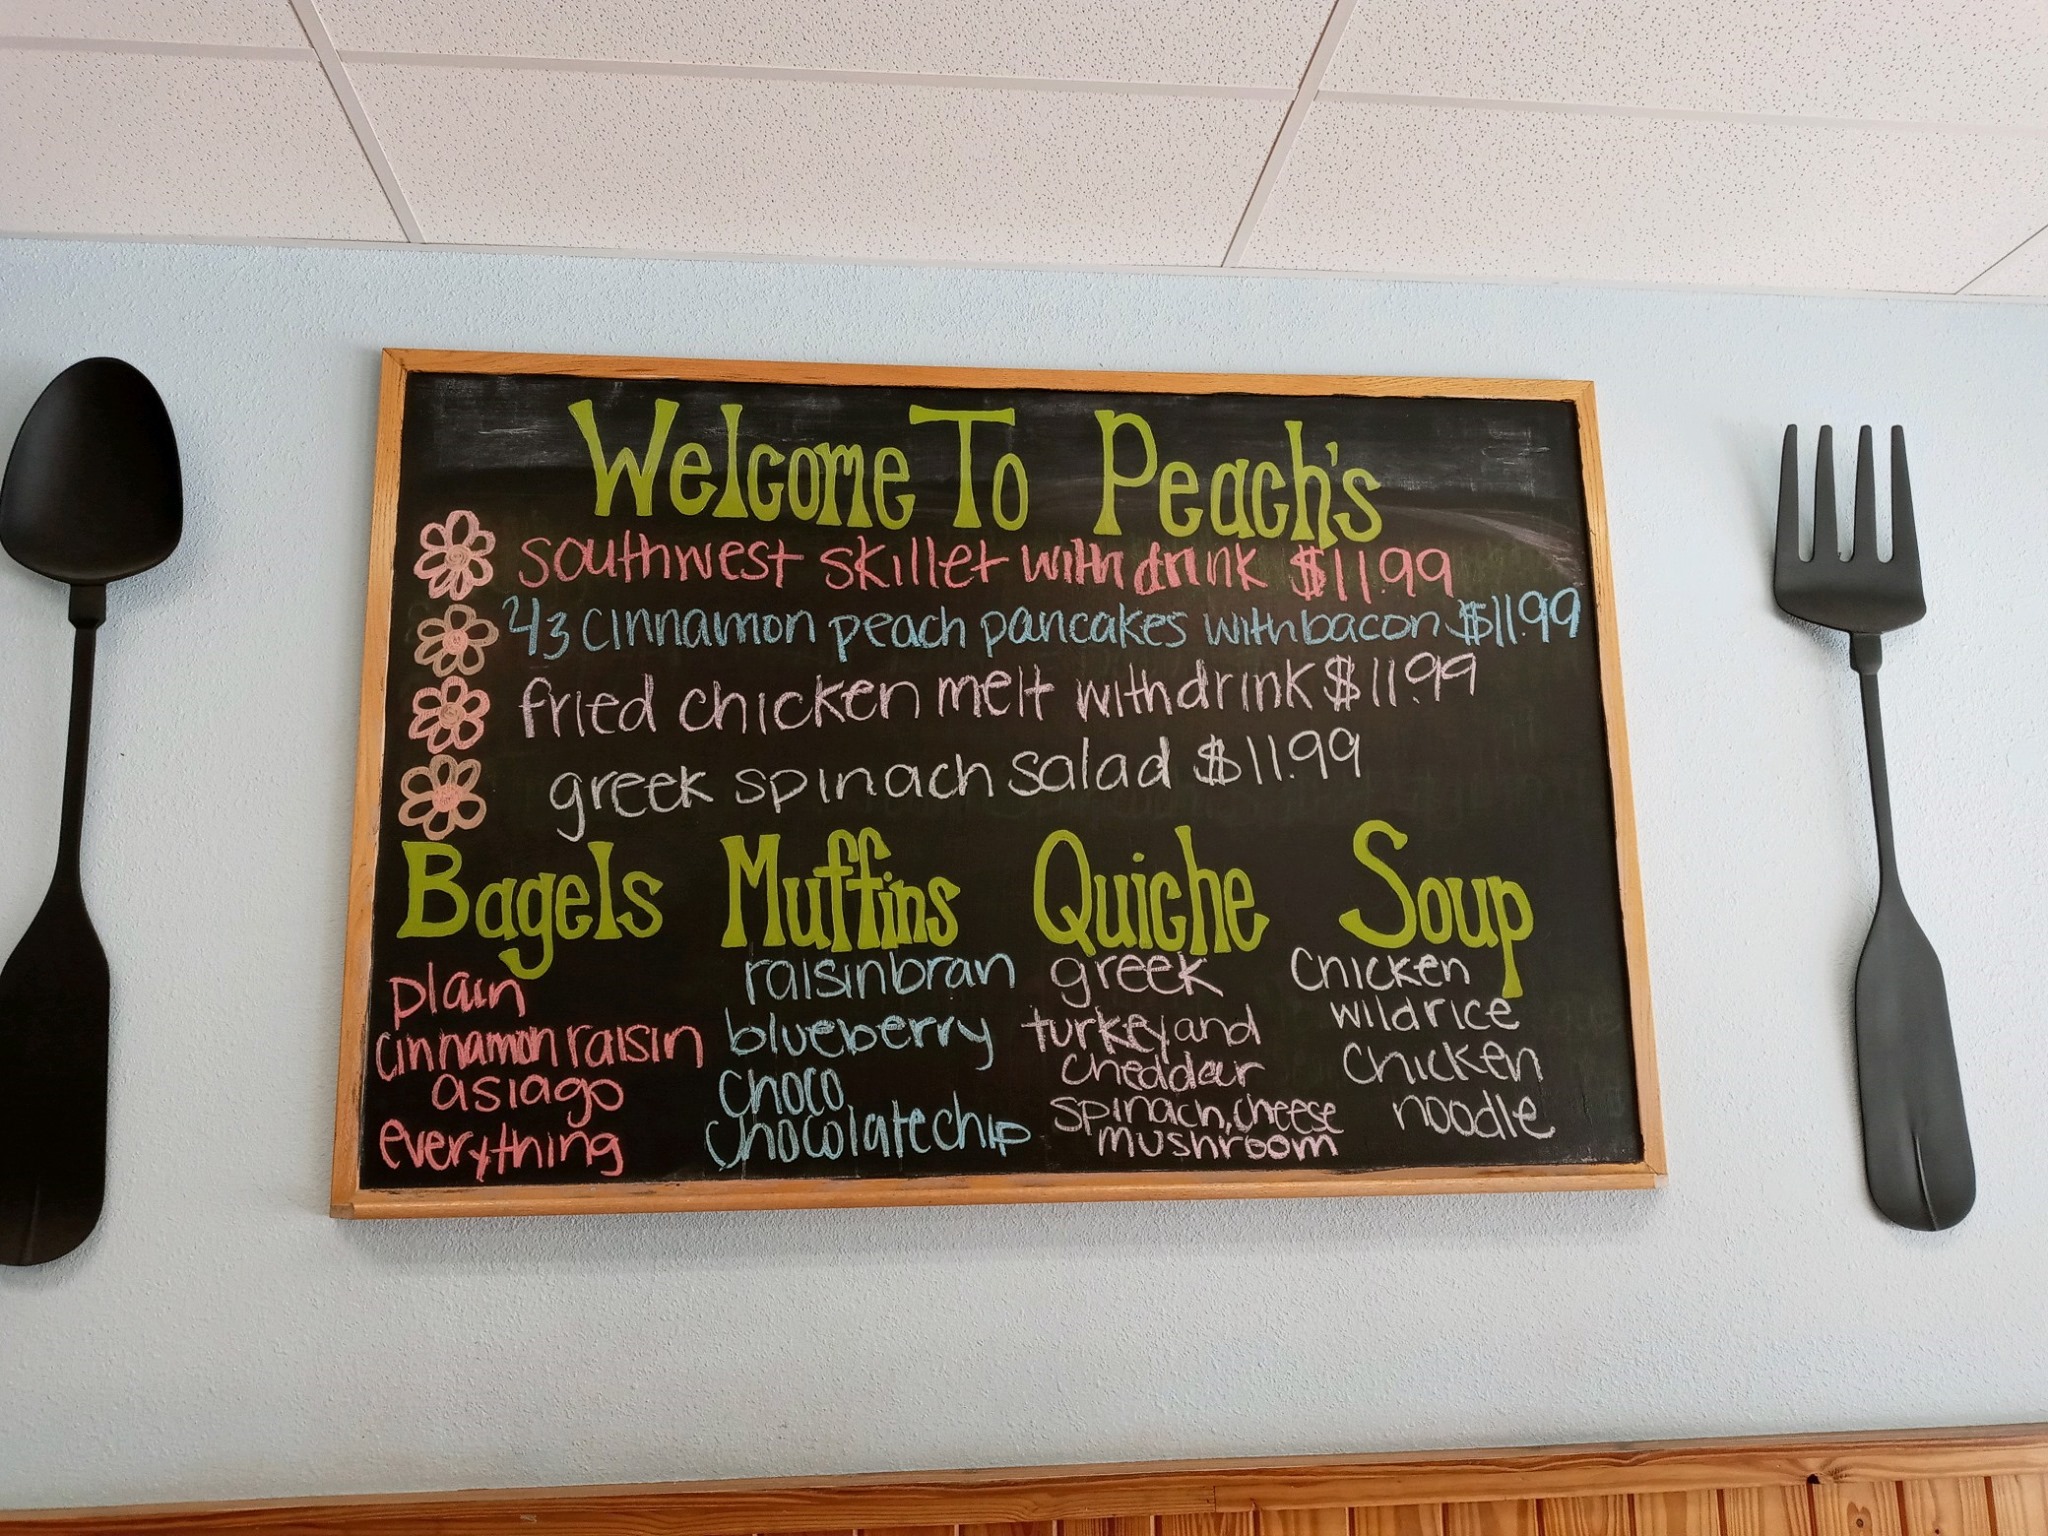 Welcome To Peach's
southwest skillet with drink $11.99
2/3 cinnamon peach pancakes with bacon $11.99
fried chicken melt with drink $11.99
greek spinach salad $11.99
Bagels
plain
cinnamon raisin
asiago
everything
Muffins
raisin bran
blueberry
choco
chocolate chip
Quiche
greek
turkey and
cheddar
spinach, cheese
mushroom
Soup
Chicken
wild rice
Chicken
noodle